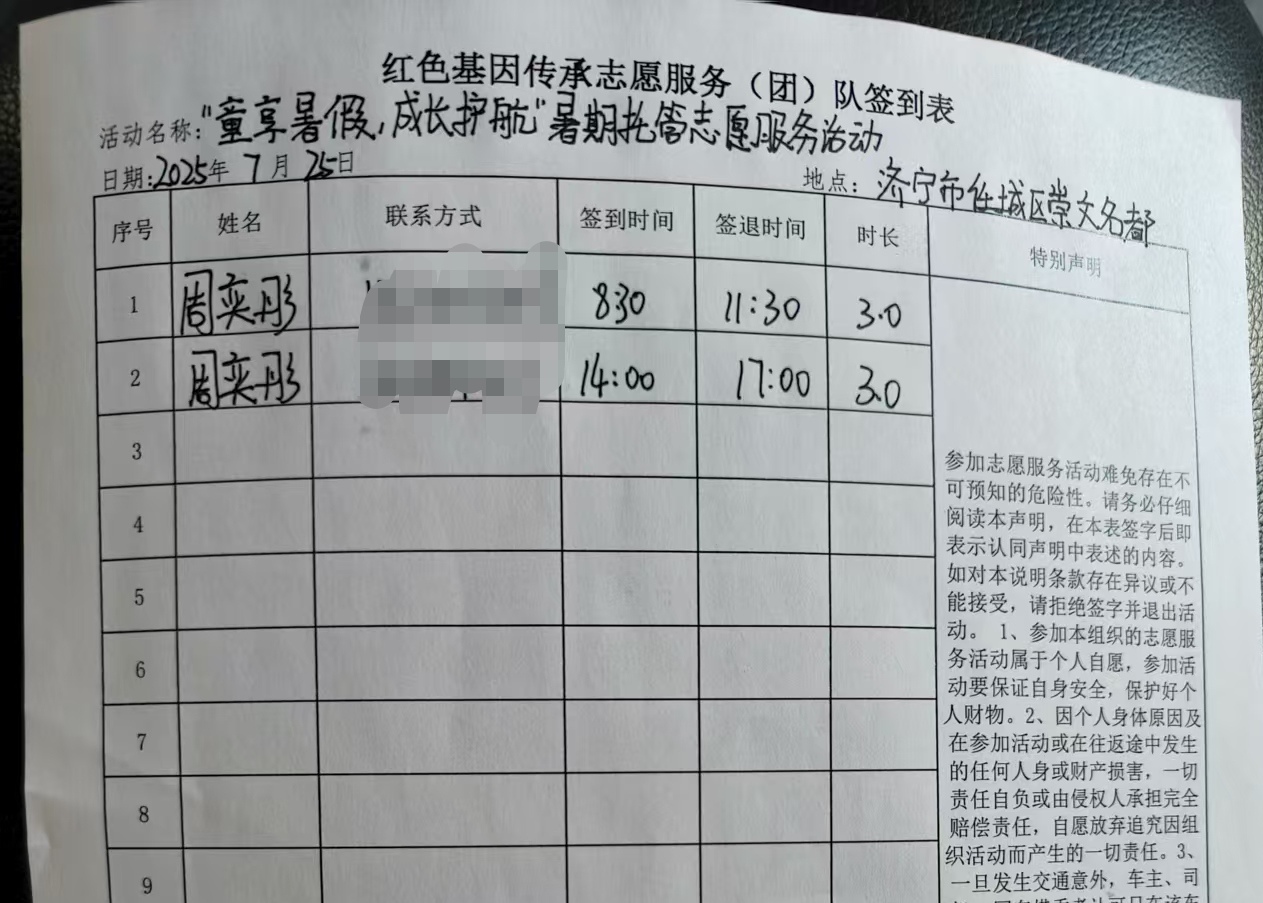 红色基因传承志愿服务（团）队签到表
活动名称："童享暑假,成长护航"暑期托管志愿服务活动
日期:2025年 7 月 25日
地点：济宁市任城区崇文名都
序号 姓名 联系方式 签到时间 签退时间 时长 特别声明
1 周奕彤 830 11:30 3.0
2 周奕彤 14:00 17:00 3.0
3
4
5
6
7
8
9
参加志愿服务活动难免存在不
可预知的危险性。请务必仔细
阅读本声明，在本表签字后即
表示认同声明中表述的内容。
如对本说明条款存在异议或不
能接受，请拒绝签字并退出活
动。 1、参加本组织的志愿服
务活动属于个人自愿，参加活
动要保证自身安全，保护好个
人财物。2、因个人身体原因及
在参加活动或在往返途中发生
的任何人身或财产损害，一切
责任自负或由侵权人承担完全
赔偿责任，自愿放弃追究因组
织活动而产生的一切责任。3、
一旦发生交通意外，车主、司